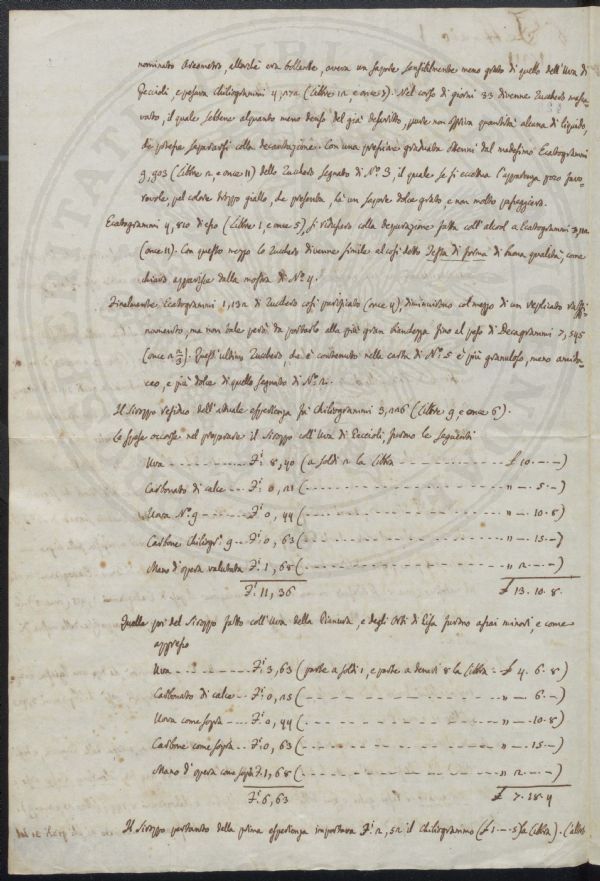 nominato Areometro, allorchè era bollente, aveva un sapore sensibilmente meno grato di quello dell'Uva di
Peccioli, e pesava Chilogrammi 4,172 (Libbre 12, e once 3). Nel corso di giorni 33 divenne Zucchero masco-
vato, il quale sebbene alquanto meno denso del già descritto, pure non offriva quantità alcuna di liquido,
che potesse separarsi colla decantazione. Con una pressione graduata ottenni dal medesimo Ecatogrammi
9,903 (Libbre 2, e once 11) dello Zucchero segnato di N.º 3, il quale se si eccettua l'apparenza poco favo-
revole, pel colore troppo giallo, che presenta, ha un sapore dolce grato, e non molto passeggiero.
Ecatogrammi 4,810 di esso (Libbre 1, e once 5), si ridussero colla depurazione fatta coll'alcool a Ecatogrammi 3,112
(once 11). Con questo mezzo lo Zucchero divenne simile al così detto Testa di forma di buona qualità, come
chiaro apparisce dalla mostra di N.º 4.
Finalmente Ecatogrammi 1,132 di Zucchero così purificato (once 4), diminuirono col mezzo di un replicato raffi-
namento, ma non tale però da portarlo alla più gran bianchezza fino al peso di Decagrammi 7,545
(once 2 2/3). Quest'ultimo Zucchero, che è contenuto nella carta di N.º 5 è più granuloso, meno amida-
ceo, e più dolce di quello segnato di N.º 2.
Il Siroppo residuo dell'attuale esperienza fu Chilogrammi 3,226 (Libbre 9, e once 6).
Le spese occorse nel preparare il Siroppo coll'Uva di Peccioli furono le seguenti
Uva - - - F.i 8,40 (a soldi 2 la libbra - - - £ 10. - . - )
Carbonato di calce - - - F.i 0,21 ( - - - " - . 5 . - )
Uova N.º 9 - - - F.i 0,44 ( - - - " - . 10. 8 )
Carbone Chilogr.i 9 - - - F.i 0,63 ( - - - " - . 15. - )
Mano d'opera valutata F.i 1,68 ( - - - " 2. - . - )
F.i 11,36 £ 13. 10. 8.
Quelle poi del Siroppo fatto coll'Uva della Pianura, e degli Orti di Pisa furono assai minori, e come
appresso
Uva - - - F.i 3,63 (parte a soldi 1, e parte a denari 8 la Libbra - - £ 4. 6. 8 )
Carbonato di calce - - - F.i 0,25 ( - - - " - . 6. - )
Uova come sopra - - - F.i 0,44 ( - - - " - . 10. 8 )
Carbone come sopra - - F.i 0,63 ( - - - " - . 15. - )
Mano d'opera come sopra F.i 1,68 ( - - - " 2. - . - )
F.i 6,63 £ 7. 18. 4
Il Siroppo pertanto della prima esperienza importava F.i 2,52 il Chilogrammo (£ 1. - . 5) la Libbra). L'altro